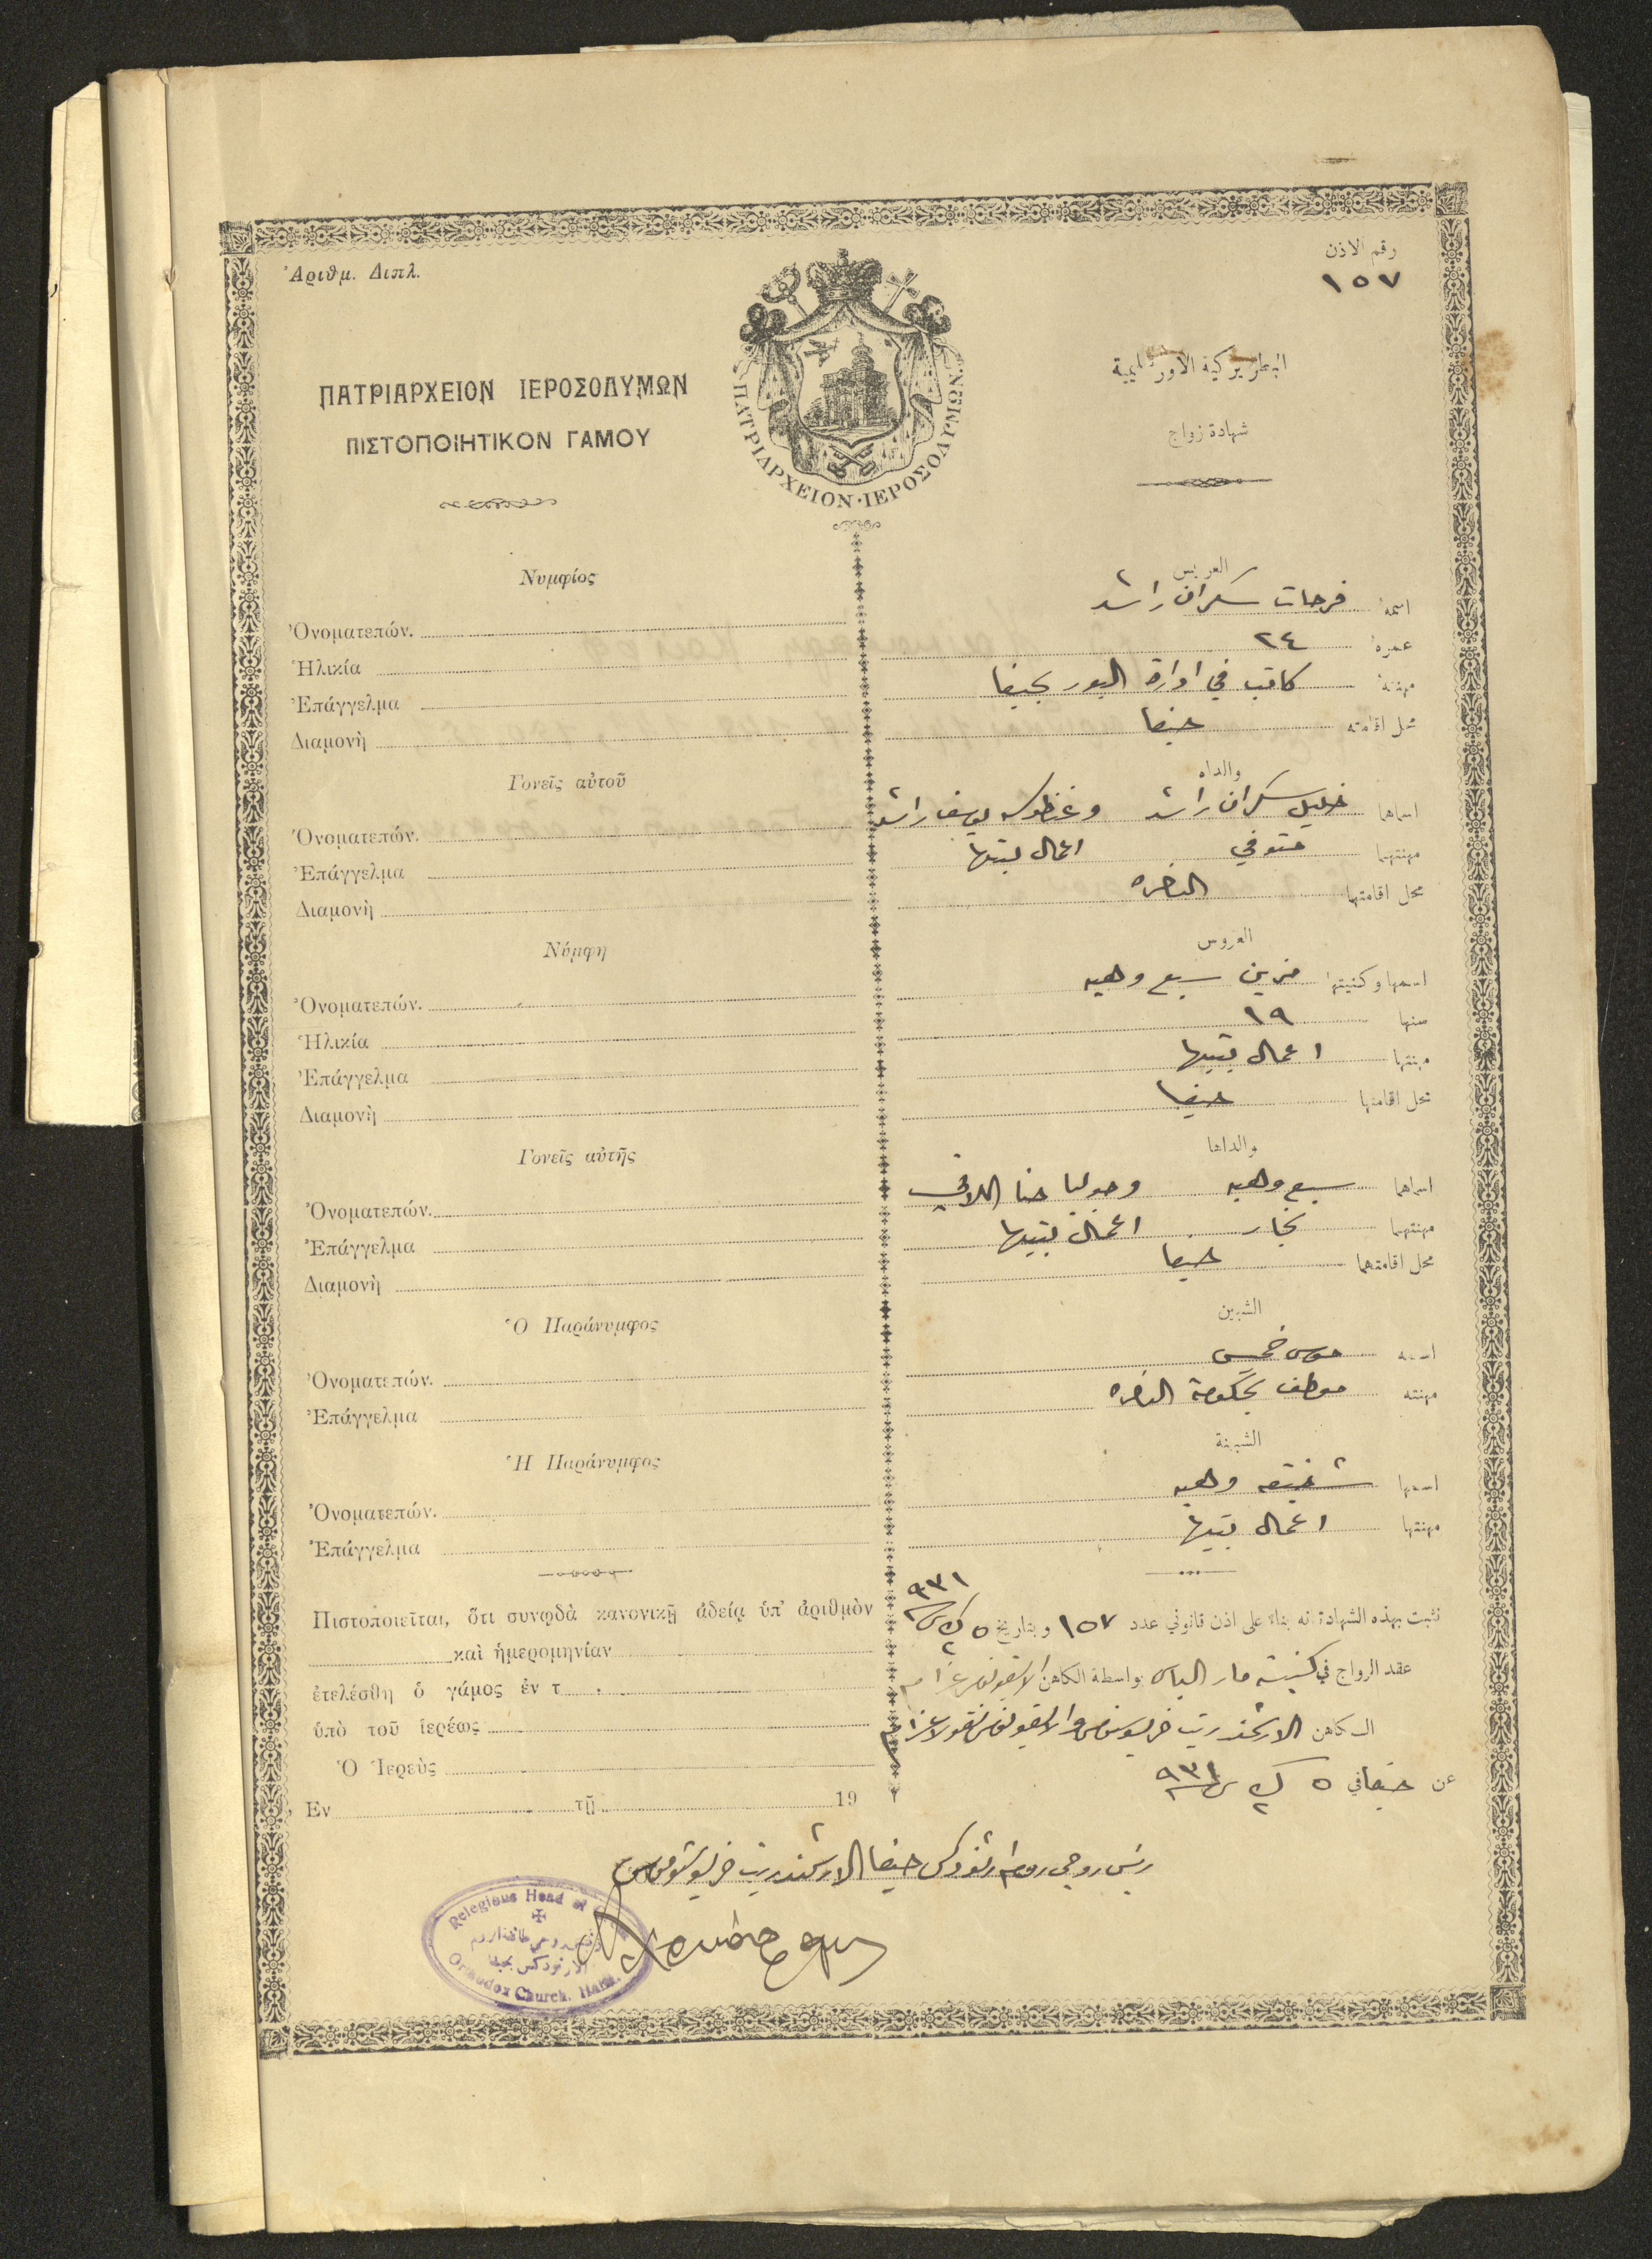 Ἀριθμ. Διπλ.
رقم الاذن
١٥٧
ΠΑΤΡΙΑΡΧΕΙΟΝ ΙΕΡΟΣΟΛΥΜΩΝ
ΠΙΣΤΟΠΟΙΗΤΙΚΟΝ ΓΑΜΟΥ
ΠΑΤΡΙΑΡΧΕΙΟΝ·ΙΕΡΟΣΟΛΥΜΩΝ·
البطريركية الاورشليمية
شهادة زواج
Νυμφίος
العريس
Ὀνοματεπών.
اسمه فرحات سكران راشد
Ἡλικία
عمره ٢٤
Ἐπάγγελμα
مهنته كاتب في ادارة البور بحيفا
Διαμονὴ
محل اقامته حيفا
Γονεῖς αὐτοῦ
والداه
Ὀνοματεπών.
اسماهما خليل سكران راشد يوسف راشد
Ἐπάγγελμα
مهنتهما متوفي اعمال بيتها
Διαμονὴ
محل اقامتهما الناصره
Νύμφη
العروس
Ὀνοματεπών.
اسمها وكنيتها سبع وهبه
Ἡλικία
سنها ١٩
Ἐπάγγελμα
مهنتها اعمال بيتها
Διαμονὴ
محل اقامتها حيفا
Γονεῖς αὐτῆς
والداها
Ὀνοματεπών.
اسماهما سبع وهبه وجوليا حنا
Ἐπάγγελμα
مهنتهما نجار اعمال بيتها
Διαμονὴ
محل اقامتهما حيفا
Ὁ Παράνυμφος
الشبين
Ὀνοματεπών.
اسمه موسى خميس
Ἐπάγγελμα
مهنته موظف بحكومة الناصره
Ἡ Παράνυμφος
الشبينة
Ὀνοματεπών.
اسمها شفيقه وهبه
Ἐπάγγελμα
مهنتها اعمال بيتها
Πιστοποιεῖται, ὅτι συνῳδὰ κανονικῇ ἀδείᾳ ὑπ' ἀριθμὸν
καὶ ἡμερομηνίαν
ἐτελέσθη ὁ γάμος ἐν τ
ὑπὸ τοῦ ἱερέως
Ὁ Ἱερεὺς
Ἐν τῇ 19
نثبت بهذه الشهادة انه بناء على اذن قانوني عدد ١٥٧ وبتاريخ ٥ ك٢ سنة ٩٣١
عقد الزواج في كنيسة مار الياس بواسطة الكاهن
الكاهن الارشمندريت
عن حيفا في ٥ ك٢ سنة ٩٣١
رئيس روحي روم ارثوذكس حيفا الارشمندريت
Relegious Head of
رئيس روحي طائفة الروم
الارثوذكس بحيفا
Orthodox Church. Haifa.